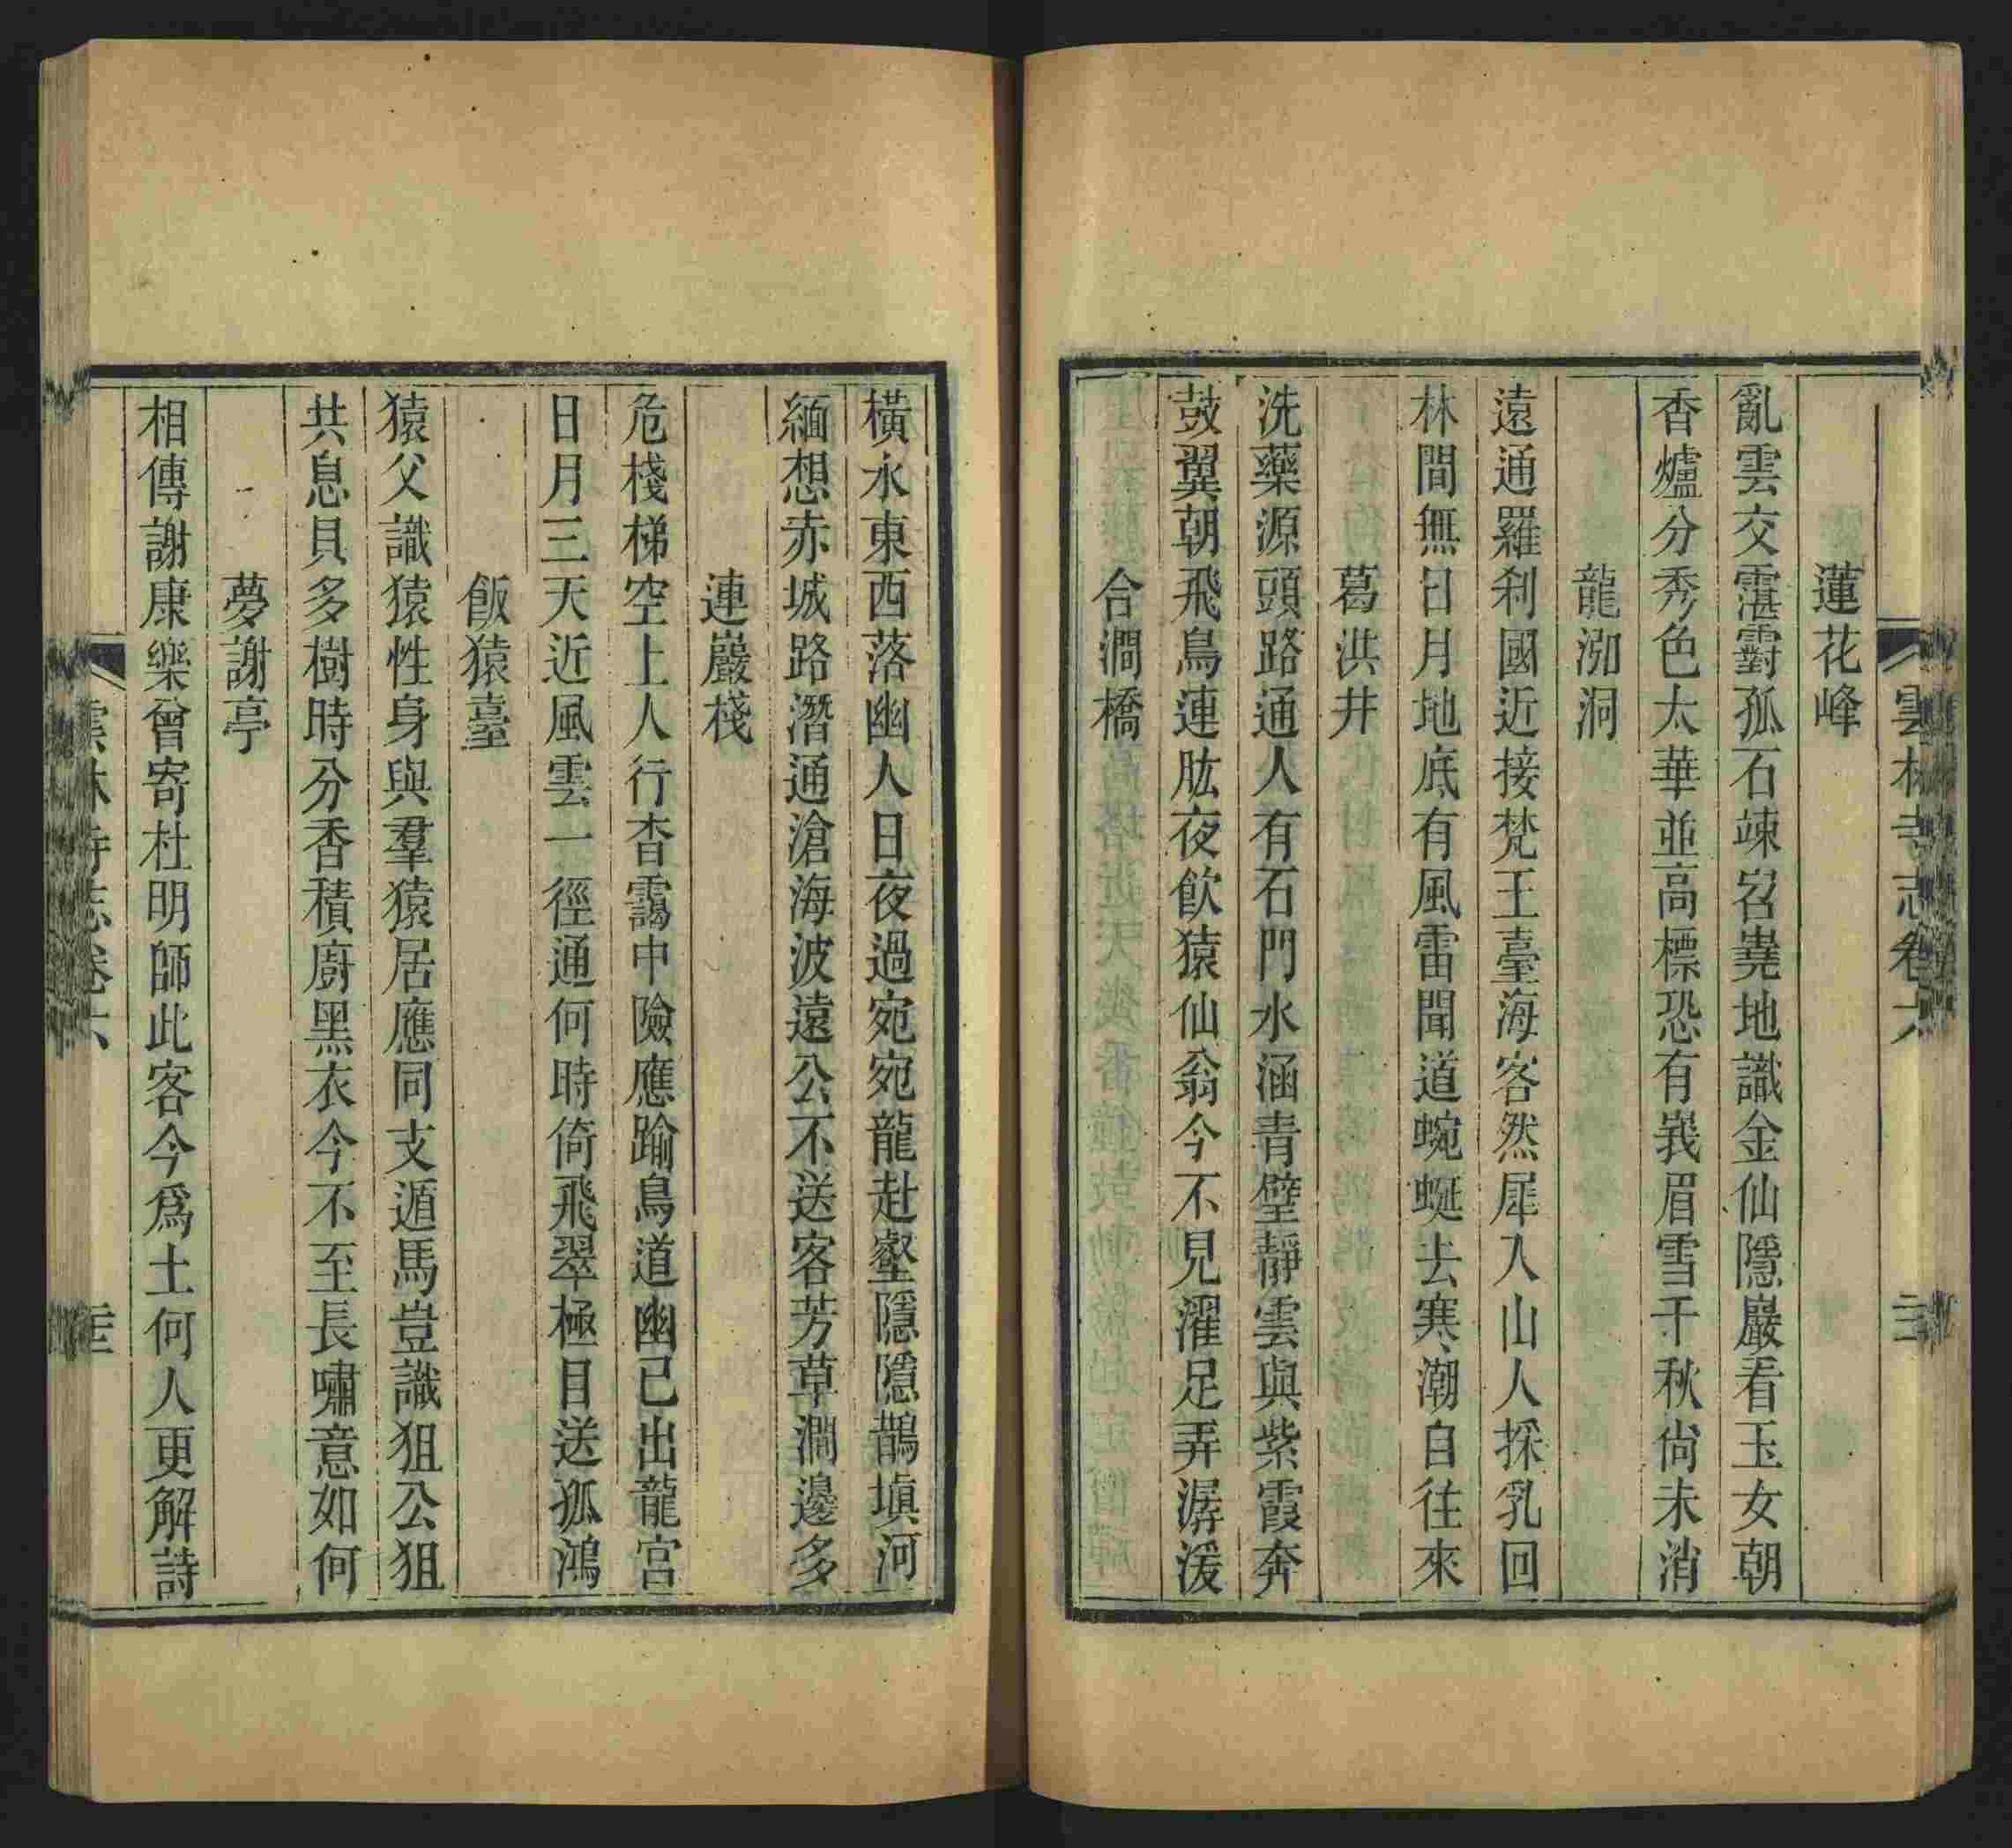 雲林寺志卷六
蓮花峰
亂雲交霮䨴孤石竦岧嶤地識金仙隱巖看玉女朝
香爐分秀色太華並高標恐有峩眉雪千秋尙未消
龍泓洞
遠通羅刹國近接梵王臺海客然犀入山人採乳回
林間無日月地底有風雷聞道蜿蜒去寒潮自往來
葛洪井
洗藥源頭路通人有石門水涵青壁靜雲與紫霞奔
鼓翼朝飛鳥連肱夜飲猿仙翁今不見濯足弄潺湲
合澗橋
橫水東西落幽人日夜過宛宛龍赴壑隱隱鵲塡河
緬想赤城路潛通滄海波遠公不送客芳草澗邊多
連巖棧
危棧梯空上人行杳靄中險應踰鳥道幽已出龍宮
日月三天近風雲一徑通何時倚飛翠極目送孤鴻
飯猿臺
猿父識猿性身與羣猿居應同支遁馬豈識狙公狙
共息貝多樹時分香積廚黑衣今不至長嘯意如何
夢謝亭
相傳謝康樂曾寄杜明師此客今爲土何人更解詩
雲林寺志卷六